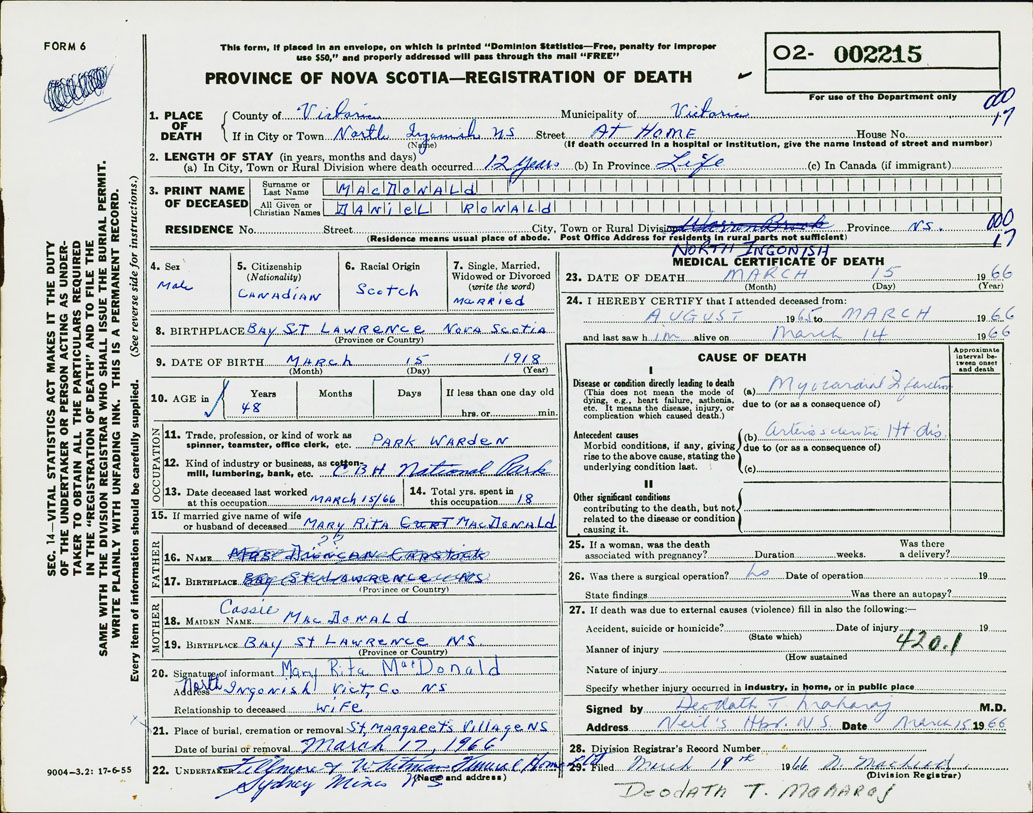 FORM 6
This form, if placed in an envelope, on which is printed "Dominion Statistics—Free, penalty for improper
use $50," and properly addressed will pass through the mail "FREE"
PROVINCE OF NOVA SCOTIA—REGISTRATION OF DEATH
02- 002215
For use of the Department only
000
17
SEC. 14—VITAL STATISTICS ACT MAKES IT THE DUTY
OF THE UNDERTAKER OR PERSON ACTING AS UNDER-
TAKER TO OBTAIN ALL THE PARTICULARS REQUIRED
IN THE "REGISTRATION OF DEATH" AND TO FILE THE
SAME WITH THE DIVISION REGISTRAR WHO SHALL ISSUE THE BURIAL PERMIT.
WRITE PLAINLY WITH UNFADING INK. THIS IS A PERMANENT RECORD.
Every item of information should be carefully supplied. (See reverse side for instructions.)
1. PLACE OF DEATH
County of Victoria Municipality of Victoria
If in City or Town North Ingonish NS Street AT HOME House No.
(Name) (If death occurred in a hospital or institution, give the name instead of street and number)
2. LENGTH OF STAY (in years, months and days)
(a) In City, Town or Rural Division where death occurred 12 Years (b) In Province Life (c) In Canada (if immigrant)
3. PRINT NAME OF DECEASED
Surname or Last Name MACDONALD
All Given or Christian Names DANIEL RONALD
RESIDENCE No. Street City, Town or Rural Division Warren Brook Province NS.
000
17
(Residence means usual place of abode. Post Office Address for residents in rural parts not sufficient)
NORTH INGONISH
4. Sex
Male
5. Citizenship (Nationality)
CANADIAN
6. Racial Origin
Scotch
7. Single, Married, Widowed or Divorced (write the word)
MARRIED
8. BIRTHPLACE BAY ST LAWRENCE NOVA SCOTIA
(Province or Country)
9. DATE OF BIRTH MARCH 15 1918
(Month) (Day) (Year)
10. AGE in
Years Months Days If less than one day old
48 hrs. or min.
OCCUPATION
11. Trade, profession, or kind of work as
spinner, teamster, office clerk, etc. PARK WARDEN
12. Kind of industry or business, as cotton-
mill, lumbering, bank, etc. C B H National Park
13. Date deceased last worked
at this occupation MARCH 15/66
14. Total yrs. spent in
this occupation 18
15. If married give name of wife
or husband of deceased MARY RITA MACDONALD
FATHER
16. NAME
17. BIRTHPLACE BAY ST LAWRENCE NS
(Province or Country)
MOTHER
18. MAIDEN NAME Cassie MACDONALD
19. BIRTHPLACE BAY ST LAWRENCE N.S.
(Province or Country)
20. Signature of informant Mary Rita MacDonald
Address North Ingonish Vict, Co NS
Relationship to deceased WIFE
21. Place of burial, cremation or removal St. MARGARETS VILLAGE NS
Date of burial or removal March 17, 1966
22. UNDERTAKER Fillmore & Whitman Funeral Home Ltd
Sydney Mines NS
(Name and address)
9004—3.2: 17-6-55
MEDICAL CERTIFICATE OF DEATH
23. DATE OF DEATH MARCH 15 1966
(Month) (Day) (Year)
24. I HEREBY CERTIFY that I attended deceased from:
AUGUST 1965 to MARCH 1966
and last saw him alive on March 14 1966
CAUSE OF DEATH
Approximate interval be-
tween onset and death
I
Disease or condition directly leading to death
(This does not mean the mode of
dying, e.g., heart failure, asthenia,
etc. It means the disease, injury, or
complication which caused death.)
(a) Myocardial Infarction
due to (or as a consequence of)
Antecedent causes
Morbid conditions, if any, giving
rise to the above cause, stating the
underlying condition last.
(b) Arteriosclerotic Ht dis.
due to (or as a consequence of)
(c)
II
Other significant conditions
contributing to the death, but not
related to the disease or condition
causing it.
25. If a woman, was the death
associated with pregnancy? Duration weeks. Was there
a delivery?
26. Was there a surgical operation? No Date of operation 19
State findings Was there an autopsy?
27. If death was due to external causes (violence) fill in also the following:—
Accident, suicide or homicide? Date of injury 19
(State which)
Manner of injury 420.1
(How sustained
Nature of injury
Specify whether injury occurred in industry, in home, or in public place
Signed by Deodath T. Maharaj M.D.
Address Neil's Hbr. N.S. Date March 15 1966
28. Division Registrar's Record Number
29. Filed March 19th 1966
(Division Registrar)
DEODATH T. MAHARAJ